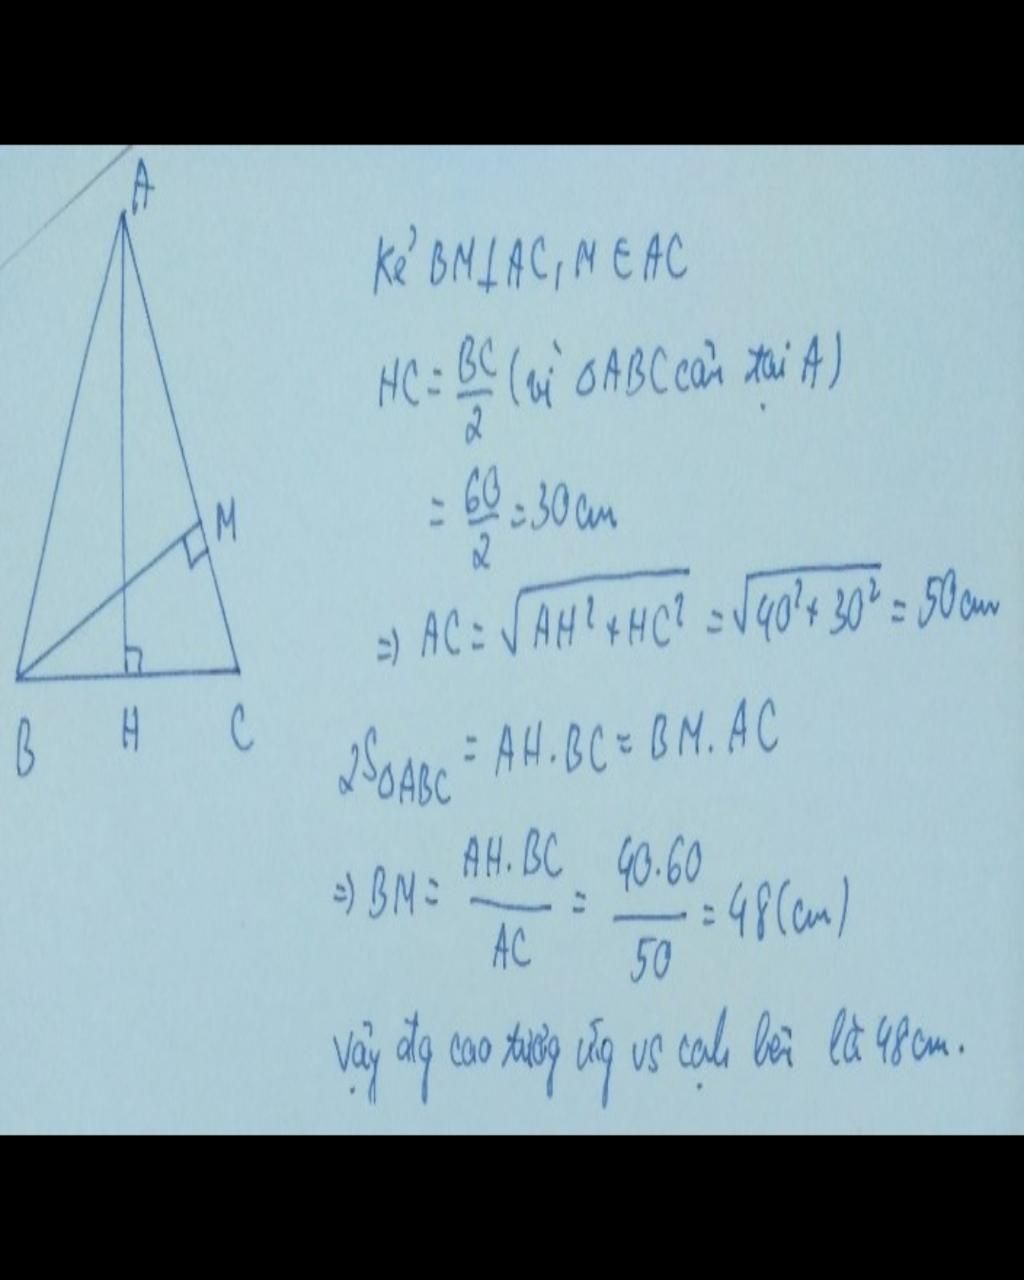 A
M
B
H
C
Kẻ BM⊥AC, M∈AC
HC = BC/2 (vì ΔABC cân tại A)
= 60/2 = 30cm
=> AC = √(AH² + HC²) = √(40² + 30²) = 50cm
2SΔABC = AH.BC = BM.AC
=> BM = AH.BC/AC = 40.60/50 = 48(cm)
Vậy đg cao tương ứng vs cạnh bên là 48cm.